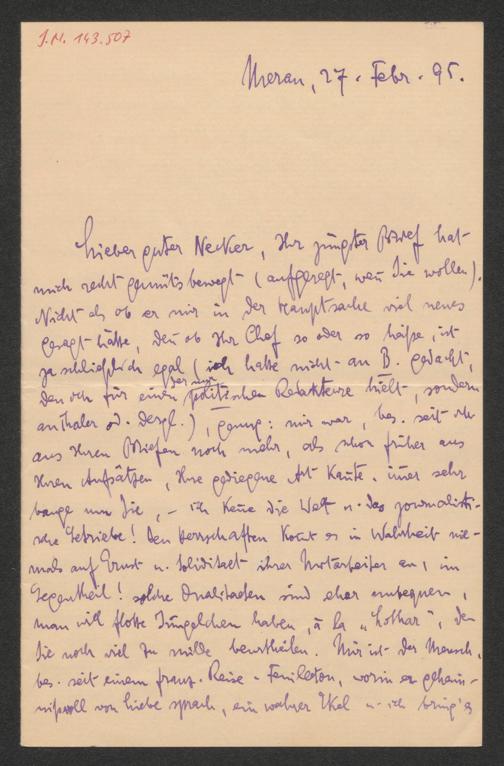 J.N. 143.507
Meran, 27. Febr. 95.
Lieber guter Necker, Ihr jüngster Brief hat
mich recht gemütsbewegt (aufgeregt, wenn Sie wollen).
Nicht als ob er mir in der Hauptsache viel neues
gesagt hätte, den ob Ihr Chef so oder so heiße, ist
ja schließlich egal (ich hatte nicht an B. gedacht,
den ich für einen politischen Redakteure hielt, sondern
an Thaler od. dergl.), genug: mir war, bes. seit ich
aus Ihren Briefen noch mehr, als schon früher aus
Ihren Aufsätzen, Ihre gediegene Art kante, imer sehr
bange um Sie, – ich kene die Welt u. das journalisti-
sche Getriebe! Den Herrschaften komt es in Wahrheit nie-
mals auf Ernst u. Solidität ihrer Mitarbeiter an, im
Gegentheil! solche Qualitäten sind eher unbequem,
man will flotte Jüngelchen haben, à la "Lothar", den
Sie noch viel zu milde beurtheilen. Mir ist der Mensch,
bes. seit einem franz. Reise-Feuilleton, worin er geheim-
nißvoll von Liebe sprach, ein wahrer Ekel u. ich bring's